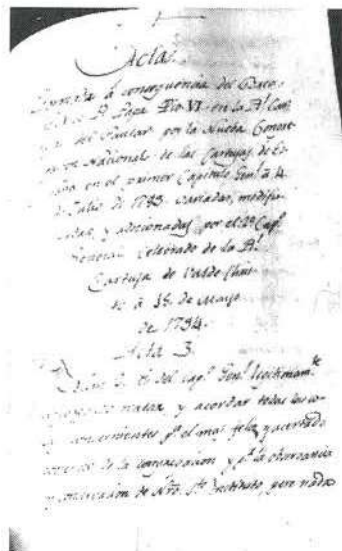 Actas.
á consequencia del
Papa Pio VI. en la Rl. Car-
del Paular por la Nueba Congre-
Nacional de las Cartujas de Es-
en el primer Capitulo Genl. á 4
de Julio de 1785. variadas, modifi-
cadas, y adicionadas por el 2o. Capo.
General Celebrado de la Rl.
Cartuja de Valde Chris-
á 18. de Mayo
de 1794.
Acta 3.
del Capo. Genl. legitimamte.
tratar, y acordar todas las co-
concernientes pa. el mas feliz, y acertado
de la congregacion y pa. la observancia
y conservacion de Nro. Sto. Instituto, pero nada